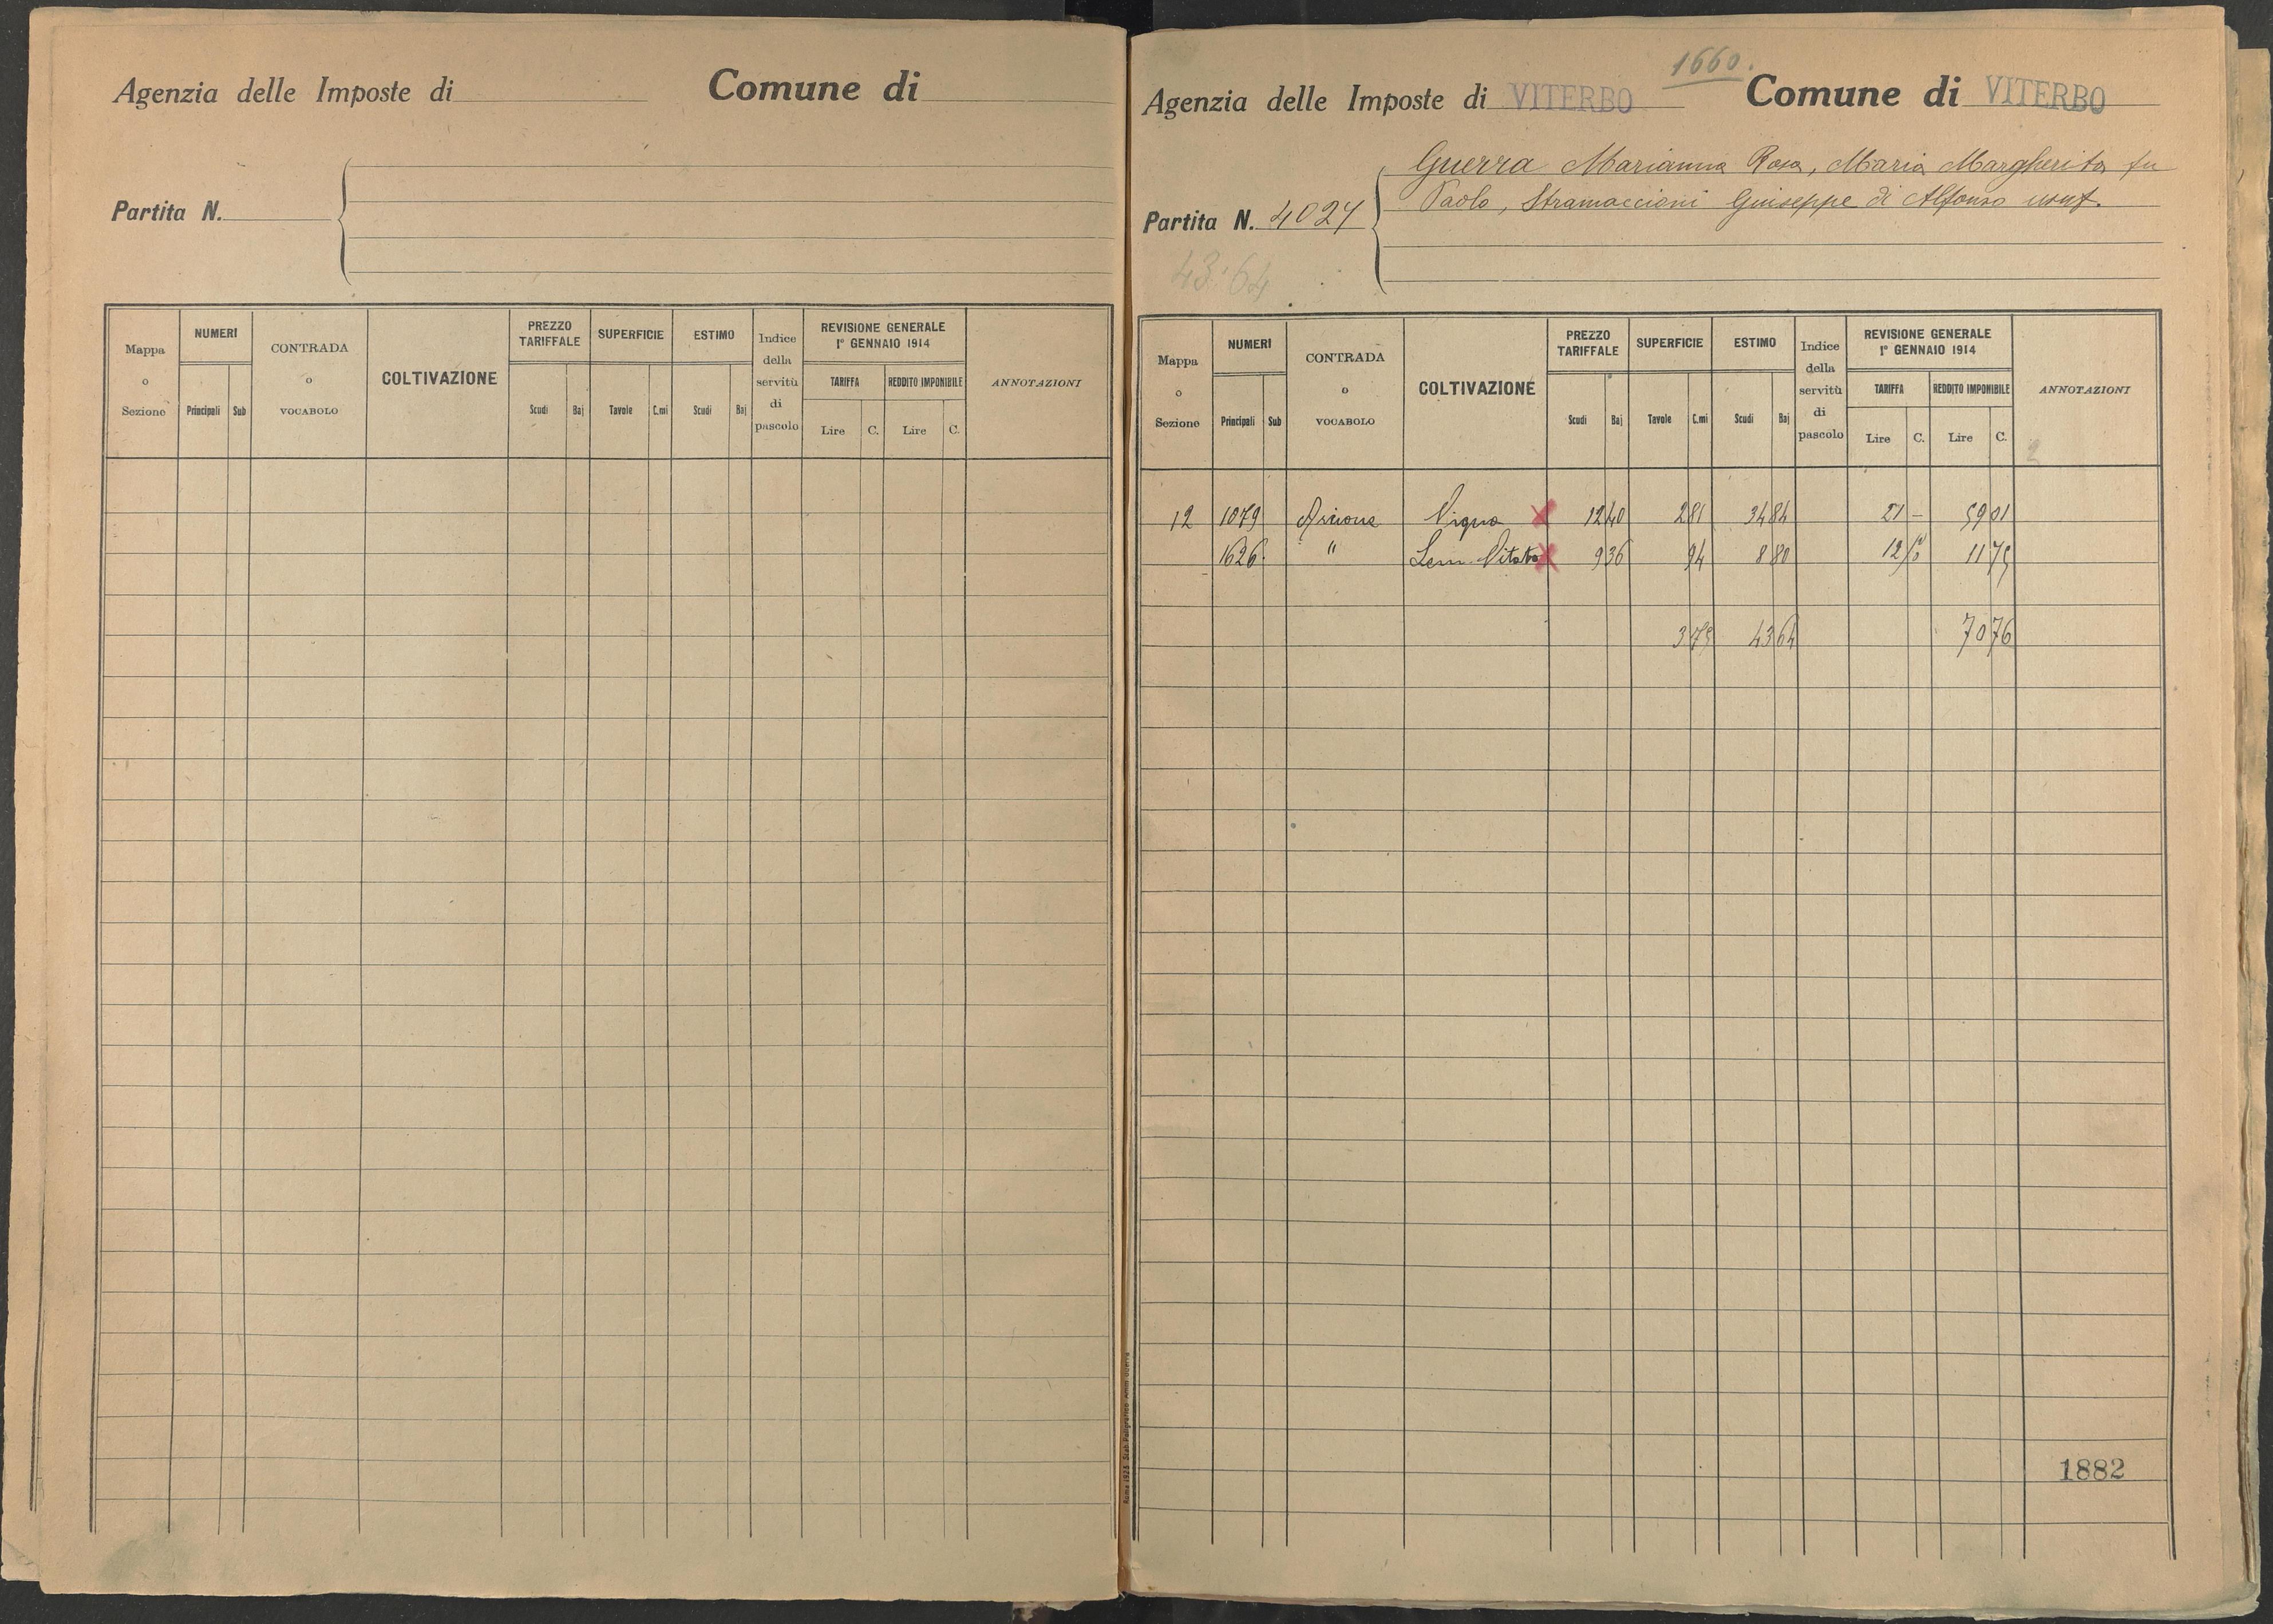 Agenzia delle Imposte di Comune di
Partita N.
Mappa o Sezione NUMERI Principali Sub CONTRADA o VOCABOLO COLTIVAZIONE PREZZO TARIFFALE Scudi Baj SUPERFICIE Tavole C.mi ESTIMO Scudi Baj Indice della servitù di pascolo REVISIONE GENERALE 1° GENNAIO 1914 TARIFFA Lire C. REDDITO IMPONIBILE Lire C. ANNOTAZIONI
1660.
Agenzia delle Imposte di VITERBO Comune di VITERBO
Guerra Marianna Rosa, Maria Margherita fu
Paolo, Stramaccioni Giuseppe di Alfonso usuf.
Partita N. 4024
43:64
Mappa o Sezione NUMERI Principali Sub CONTRADA o VOCABOLO COLTIVAZIONE PREZZO TARIFFALE Scudi Baj SUPERFICIE Tavole C.mi ESTIMO Scudi Baj Indice della servitù di pascolo REVISIONE GENERALE 1° GENNAIO 1914 TARIFFA Lire C. REDDITO IMPONIBILE Lire C. ANNOTAZIONI
2
12 1079 Vigna 12 40 2 81 34 84 21 - 59 01
1626 " Sem. Vitato 9 36 94 8 80 12 50 11 75
3 75 43 64 70 76
1882